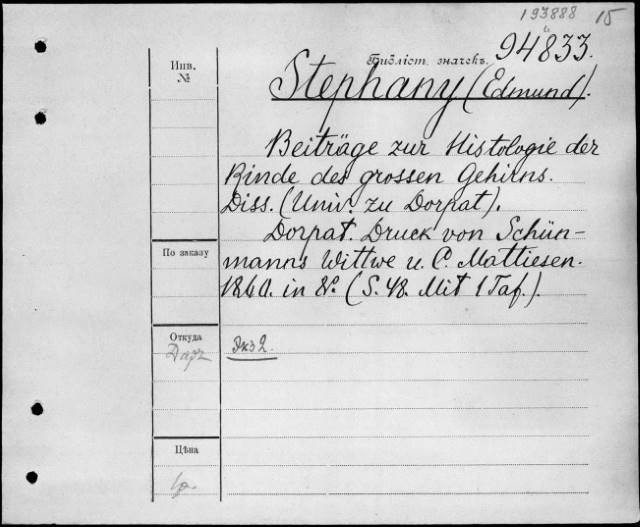 193888 15
Библіот. значекъ. 94833.
Инв.
№
Stephany (Edmund).
Beiträge zur Histologie der
Rinde des grossen Gehirns.
Diss. (Univ. zu Dorpat).
Dorpat. Druck von Schün-
manns Wittwe u. C. Mattiesen.
1860. in 8º. (S. 48. Mit 1 Taf.).
По заказу
Откуда
Даръ
Экз 2.
Цѣна